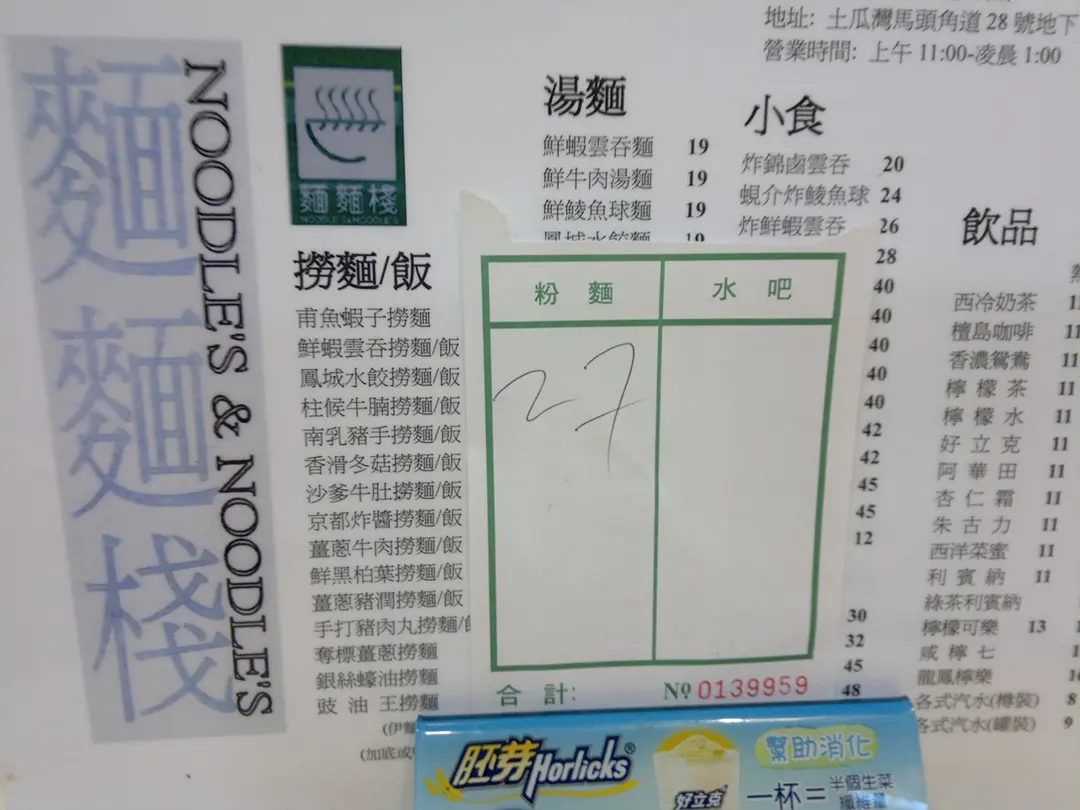 地址: 土瓜灣馬頭角道 28 號地下
營業時間: 上午 11:00-凌晨 1:00
麵麵棧
NOODLE'S & NOODLE'S
麵麵棧
NOODLE'S & NOODLE'S
湯麵
鮮蝦雲吞麵 19
鮮牛肉湯麵 19
鮮鯪魚球麵 19
鳳城水餃麵 19
小食
炸錦鹵雲吞 20
蜆介炸鯪魚球 24
炸鮮蝦雲吞 26
28
40
40
40
40
40
42
42
45
45
12
30
32
45
48
撈麵/飯
甫魚蝦子撈麵
鮮蝦雲吞撈麵/飯
鳳城水餃撈麵/飯
柱候牛腩撈麵/飯
南乳豬手撈麵/飯
香滑冬菇撈麵/飯
沙爹牛肚撈麵/飯
京都炸醬撈麵/飯
薑蔥牛肉撈麵/飯
鮮黑柏葉撈麵/飯
薑蔥豬潤撈麵/飯
手打豬肉丸撈麵/
奪標薑蔥撈麵
銀絲蠔油撈麵
豉油王撈麵
(伊麵
(加底或
粉麵 水吧
27
合計: № 0139959
飲品
西冷奶茶
檀島咖啡 11
香濃鴛鴦 11
檸檬茶 11
檸檬水 11
好立克 11
阿華田 11
杏仁霜 11
朱古力 11
西洋菜蜜 11
利賓納 11
綠茶利賓納
檸檬可樂 13
咸檸七
龍鳳檸樂
各式汽水(樽裝) 8
各式汽水(罐裝) 9
胚芽Horlicks®
好立克
幫助消化
一杯=半個生菜
纖維量